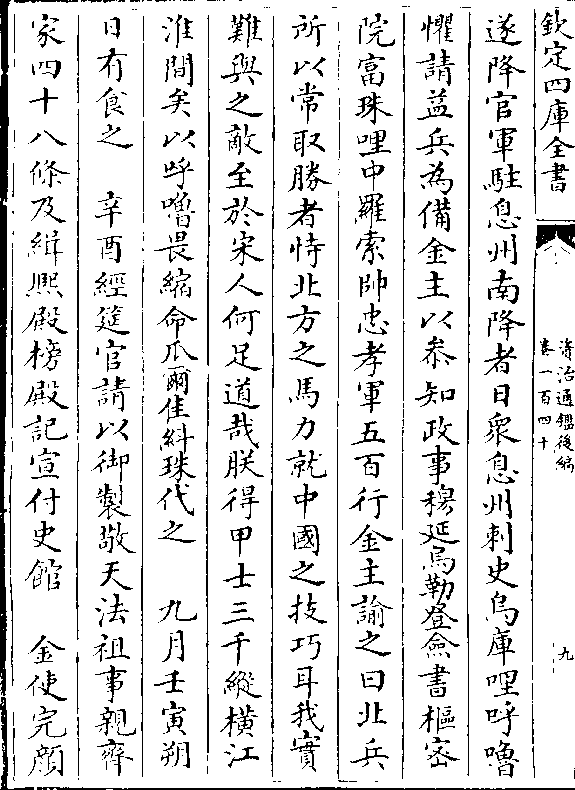 欽定四庫全書
資治通鑑後編
卷一百四十
九
遂降官軍駐息州南降者日衆息州刺史烏庫哩呼嚕
懼請益兵為備金主以叅知政事穆延烏勒登僉書樞密
院富珠哩中羅索帥忠孝軍五百行金主諭之曰北兵
所以常取勝者恃北方之馬力就中國之技巧耳我實
難與之敵至於宋人何足道哉朕得甲士三千縱橫江
淮間矣以呼嚕畏縮命瓜爾佳糾珠代之　九月壬寅朔
日有食之　辛酉經筵官請以御製敬天法祖事親齊
家四十八條及緝熙殿榜殿記宣付史館　金使完顔